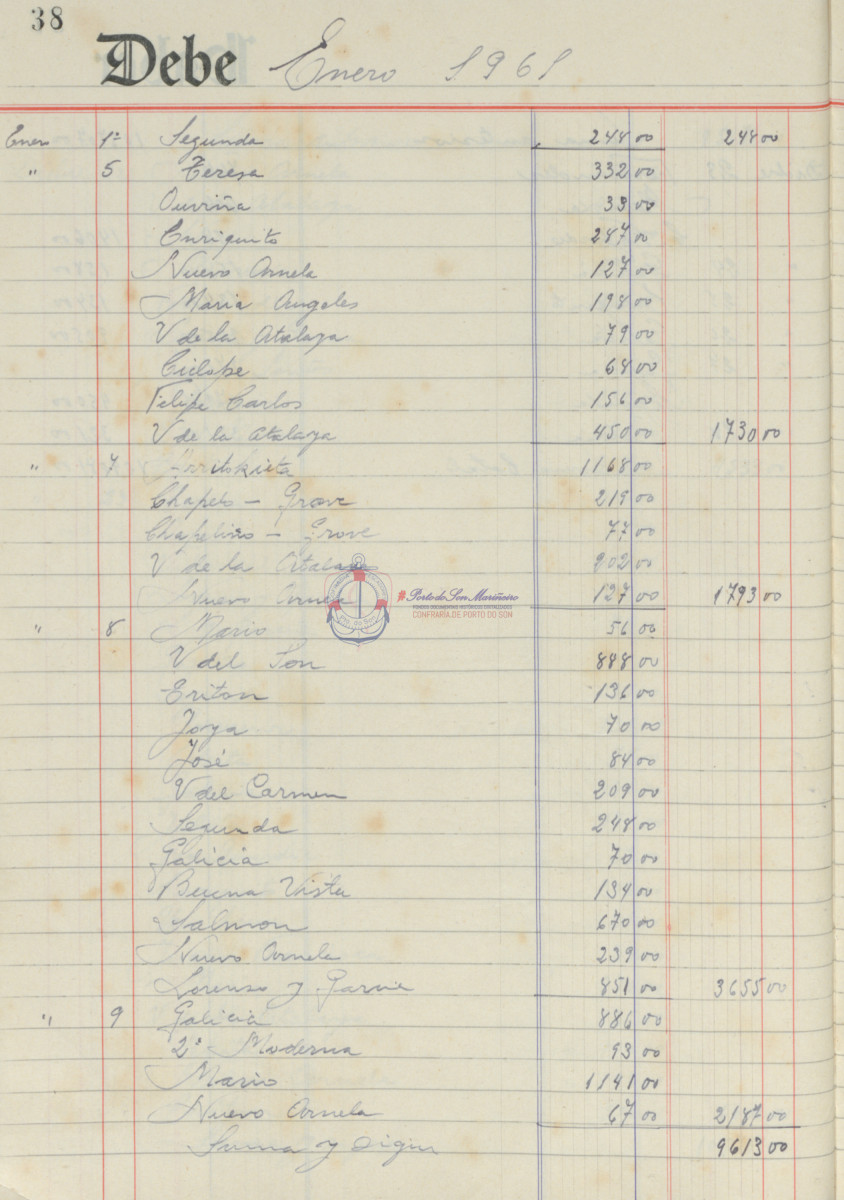 38
Debe Enero 1961
Enero 1º Segunda 248 00 248 00
" 5 Teresa 332 00
Ouviña 33 00
Enriquito 287 00
Nuevo Arnela 127 00
Maria Angeles 198 00
V de la Atalaya 79 00
Ciclope 68 00
Felipe Carlos 156 00
V de la Atalaya 450 00 1730 00
" 7 Arritokieta 1168 00
Chapeto - Grove 219 00
Chapeliño - Grove 77 00
V de la Atalaya 202 00
Nuevo Arnela 127 00 1793 00
#PortodoSonMariñeiro
CONFRARÍA DE PORTO DO SON
" 8 Mario 56 00
V del Son 888 00
Eriton 136 00
Joya 70 00
José 84 00
V del Carmen 209 00
Segunda 248 00
Galicia 70 00
Buena Vista 134 00
Salmon 670 00
Nuevo Arnela 239 00
Lorenzo y 851 00 3655 00
" 9 Galicia 886 00
2ª Moderna 93 00
Mario 1141 00
Nuevo Arnela 67 00 2187 00
Suma y sigue 9613 00